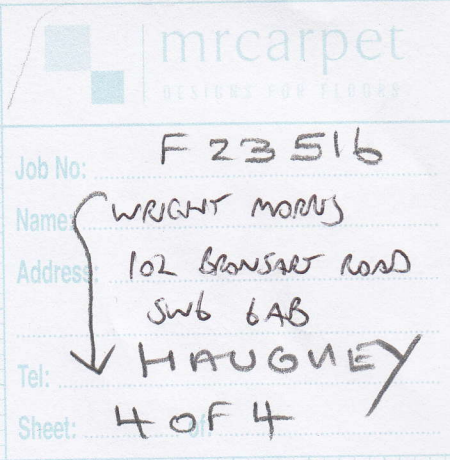 mrcarpet
DESIGNS FOR FLOORS
Job No: F23516
Name: WRIGHT MORRIS
Address: 102 BRONSART ROAD
SW6 6AB
Tel: HAUGHEY
Sheet: 4 OF 4 of: